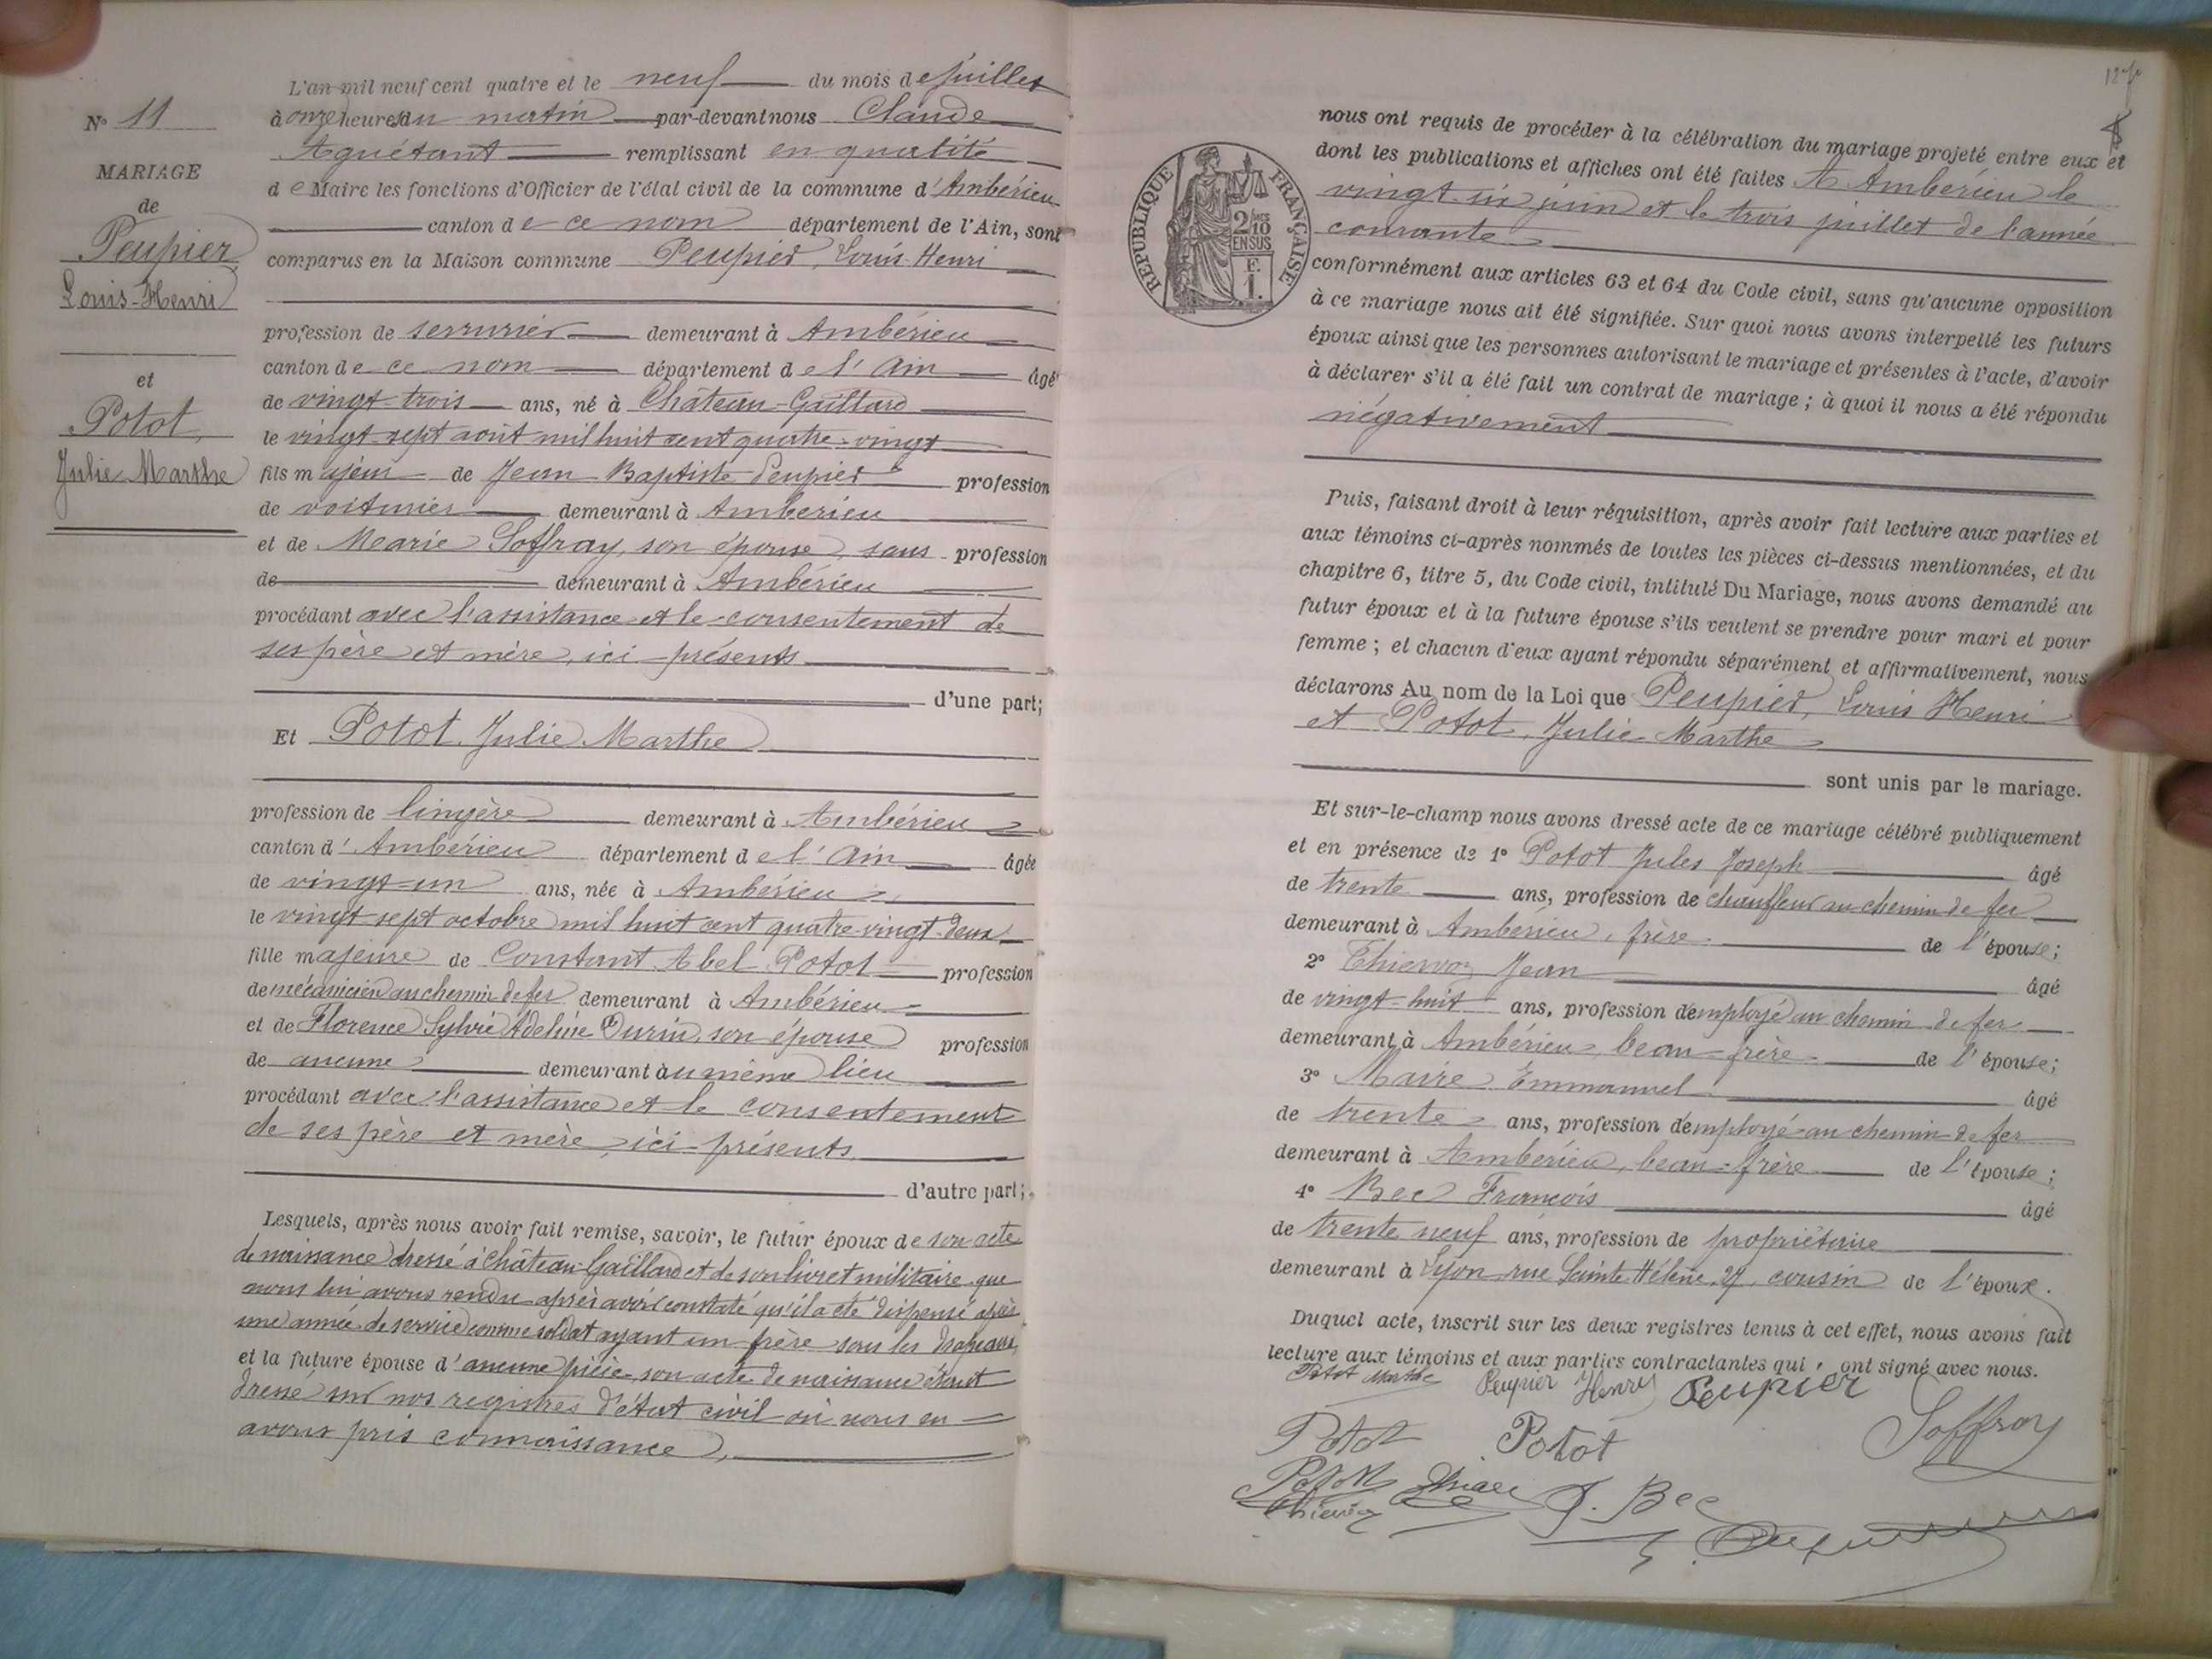 N° 11
MARIAGE
de
Peupier
Louis-Henri
et
Potot,
Julie Marthe
L'an mil neuf cent quatre et le neuf du mois de juillet
à onze heures du matin par-devant nous Claude
Aguétant remplissant en qualité
de Maire les fonctions d'Officier de l'état civil de la commune d'Ambérieu
canton de ce nom département de l'Ain, sont
comparus en la Maison commune Peupier, Louis-Henri
profession de serrurier demeurant à Ambérieu
canton de ce nom département de l'Ain âgé
de vingt-trois ans, né à Château-Gaillard
le vingt-sept août mil huit cent quatre-vingt
fils majeur de Jean Baptiste Peupier profession
de voiturier demeurant à Ambérieu
et de Marie Soffray, son épouse, sans profession
de demeurant à Ambérieu
procédant avec l'assistance et le consentement de
ses père et mère, ici présents
d'une part;
Et Potot, Julie Marthe
profession de lingère demeurant à Ambérieu
canton d'Ambérieu département de l'Ain âgée
de vingt-un ans, née à Ambérieu
le vingt-sept octobre mil huit cent quatre-vingt-deux
fille majeure de Constant Abel Potot profession
de mécanicien au chemin de fer demeurant à Ambérieu
et de Florence Sylvie Adeline Durin, son épouse profession
de aucune demeurant au même lieu
procédant avec l'assistance et le consentement
de ses père et mère, ici présents
d'autre part;
Lesquels, après nous avoir fait remise, savoir, le futur époux de son acte
de naissance dressé à Château-Gaillard et de son livret militaire que
nous lui avons rendu après avoir constaté qu'il a été dispensé après
une année de service comme soldat ayant un frère sous les drapeaux
et la future épouse d'aucune pièce, son acte de naissance étant
dressé sur nos registres d'état civil où nous en
avons pris connaissance,
nous ont requis de procéder à la célébration du mariage projeté entre eux et
dont les publications et affiches ont été faites A Ambérieu le
vingt-six juin et le trois juillet de l'année
courante
RÉPUBLIQUE FRANÇAISE
2/10
EN SUS
F.
1.
conformément aux articles 63 et 64 du Code civil, sans qu'aucune opposition
à ce mariage nous ait été signifiée. Sur quoi nous avons interpellé les futurs
époux ainsi que les personnes autorisant le mariage et présentes à l'acte, d'avoir
à déclarer s'il a été fait un contrat de mariage ; à quoi il nous a été répondu
négativement
Puis, faisant droit à leur réquisition, après avoir fait lecture aux parties et
aux témoins ci-après nommés de toutes les pièces ci-dessus mentionnées, et du
chapitre 6, titre 5, du Code civil, intitulé Du Mariage, nous avons demandé au
futur époux et à la future épouse s'ils veulent se prendre pour mari et pour
femme ; et chacun d'eux ayant répondu séparément et affirmativement, nous
déclarons Au nom de la Loi que Peupier, Louis Henri
et Potot, Julie Marthe
sont unis par le mariage.
Et sur-le-champ nous avons dressé acte de ce mariage célébré publiquement
et en présence de 1° Potot Jules Joseph âgé
de trente ans, profession de chauffeur au chemin de fer
demeurant à Ambérieu, frère de l'épouse;
2° Jean âgé
de vingt-huit ans, profession d'employé au chemin de fer
demeurant à Ambérieu, beau-frère de l'épouse;
3° Emmanuel âgé
de trente ans, profession d'employé au chemin de fer
demeurant à Ambérieu, beau-frère de l'épouse;
4° Bec François âgé
de trente neuf ans, profession de propriétaire
demeurant à Lyon rue Sainte Hélène, 27, cousin de l'époux.
Duquel acte, inscrit sur les deux registres tenus à cet effet, nous avons fait
lecture aux témoins et aux parties contractantes qui ont signé avec nous.
Potot Marthe Peupier Henry Peupier
Potot Potot Soffray
J. Bec